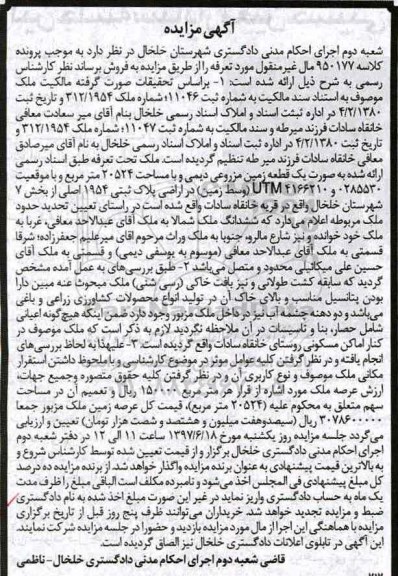 آگهی مزایده
شعبه دوم اجرای احکام مدنی دادگستری شهرستان خلخال در نظر دارد به موجب پرونده
کلاسه ۹۵۰۱۷۷ مال غیر منقول مورد تعرفه را از طریق مزایده به فروش برساند نظر کارشناس
رسمی به شرح ذیل ارائه شده است: ۱- براساس تحقیقات صورت گرفته مالکیت ملک
موصوف به استناد سند مالکیت به شماره ثبت ۱۱۰۴۶؛ شماره ملک ۳۱۲/۱۹۵۴ و تاریخ ثبت
۴/۲/۱۳۸۰ در اداره ثبت اسناد و املاک اسناد رسمی خلخال بنام آقای میر سعادت معافی
خانقاه سادات فرزند میرطه و سند مالکیت به شماره ثبت ۱۱۰۴۷؛ شماره ملک ۳۱۲/۱۹۵۴ و
تاریخ ثبت ۴/۲/۱۳۸۰ در اداره ثبت اسناد و املاک اسناد رسمی خلخال به نام آقای میرصادق
معافی خانقاه سادات فرزند میر طه تنظیم گردیده است. ملک تحت تعرفه طبق اسناد رسمی
ارائه شده به صورت یک قطعه زمین مزروعی دیمی و با مساحت ۲۰۵۲۴ متر مربع و با موقعیت
۰۲۸۵۵۳۰ و ۴۱۶۶۲۱۰ UTM (وسط زمین) در اراضی پلاک ثبتی ۱۹۵۴ اصلی از بخش ۷
شهرستان خلخال واقع در قریه خانقاه سادات واقع شده است در راستای تعیین تحدید حدود
ملک مربوطه اعلام می‌دارد که ششدانگ ملک شمالا به ملک آقای عبدالاحد معافی، غربا به
ملک خود خوانده و نیز شارع مالرو، جنوبا به ملک وراث مرحوم اقای میرعلیم جعفرزاده؛ شرقا
قسمتی به ملک آقای عبدالاحد معافی (موسوم به یوسفی دیمی) و قسمتی به ملک آقای
حسین علی میکائیلی محدود و متصل می‌باشد ۲- طبق بررسی‌های به عمل آمده مشخص
گردید که سابقه کشت طولانی و نیز بافت خاکی (رسی شنی) ملک مبحوث عنه مبین دارا
بودن پتانسیل مناسب و بالای خاک آن در تولید انواع محصولات کشاورزی زراعی و باغی
می‌باشد و دو دهنه چشمه آب نیز در داخل ملک مزبور وجود دارد ضمن اینکه هیچ‌گونه اعیانی
شامل حصار، بنا و تاسیسات در آن ملاحظه نگردید لازم به ذکر است که ملک موصوف در
کنار اماکن مسکونی روستای خانقاه سادات واقع گردیده است. ۳- علیهذا به لحاظ بررسی‌های
انجام یافته و در نظر گرفتن کلیه عوامل موثر در موضوع کارشناسی و با ملحوظ داشتن استقرار
مکانی ملک موصوف و نوع کاربری آن و در نظر گرفتن کلیه حقوق متصوره وجمیع جهات،
ارزش عرصه ملک مورد اشاره از قرار هر متر مربع ریال و تعمیم آن در مساحت
سهم متعلق به محکوم علیه (۲۰۵۲۴ متر مربع)، قیمت کل عرصه زمین ملک مزبور جمعا
۳۰۷۸۶۰۰۰۰۰ ریال (سیصدوهفت میلیون و هشتصد و شصت هزار تومان) تعیین و ارزیابی
می‌گردد جلسه مزایده روز یکشنبه مورخ ۱۳۹۷/۶/۱۸ ساعت ۱۱ الی ۱۲ در دفتر شعبه دوم
اجرای احکام مدنی دادگستری خلخال برگزار و از قیمت تعیین شده توسط کارشناس شروع و
به بالاترین قیمت پیشنهادی به عنوان برنده مزایده واگذار خواهد شد. از برنده مزایده ده درصد
کل مبلغ پیشنهادی فی المجلس اخذ می‌شود و نامبرده مکلف است الباقی مبلغ را ظرف مدت
یک ماه به حساب دادگستری واریز نماید در غیر این صورت مبلغ اخذ شده به نام دادگستری
ضبط و مزایده تجدید خواهد شد. خریداران می‌توانند ظرف پنج روز قبل از تاریخ برگزاری
مزایده با هماهنگی این اجرا از مال مورد مزایده بازدید و حضورا در جلسه مزایده شرکت نمایند.
این آگهی در تابلوی اعلانات دادگستری خلخال نیز الصاق گردیده است.
قاضی شعبه دوم اجرای احکام مدنی دادگستری خلخال- ناظمی